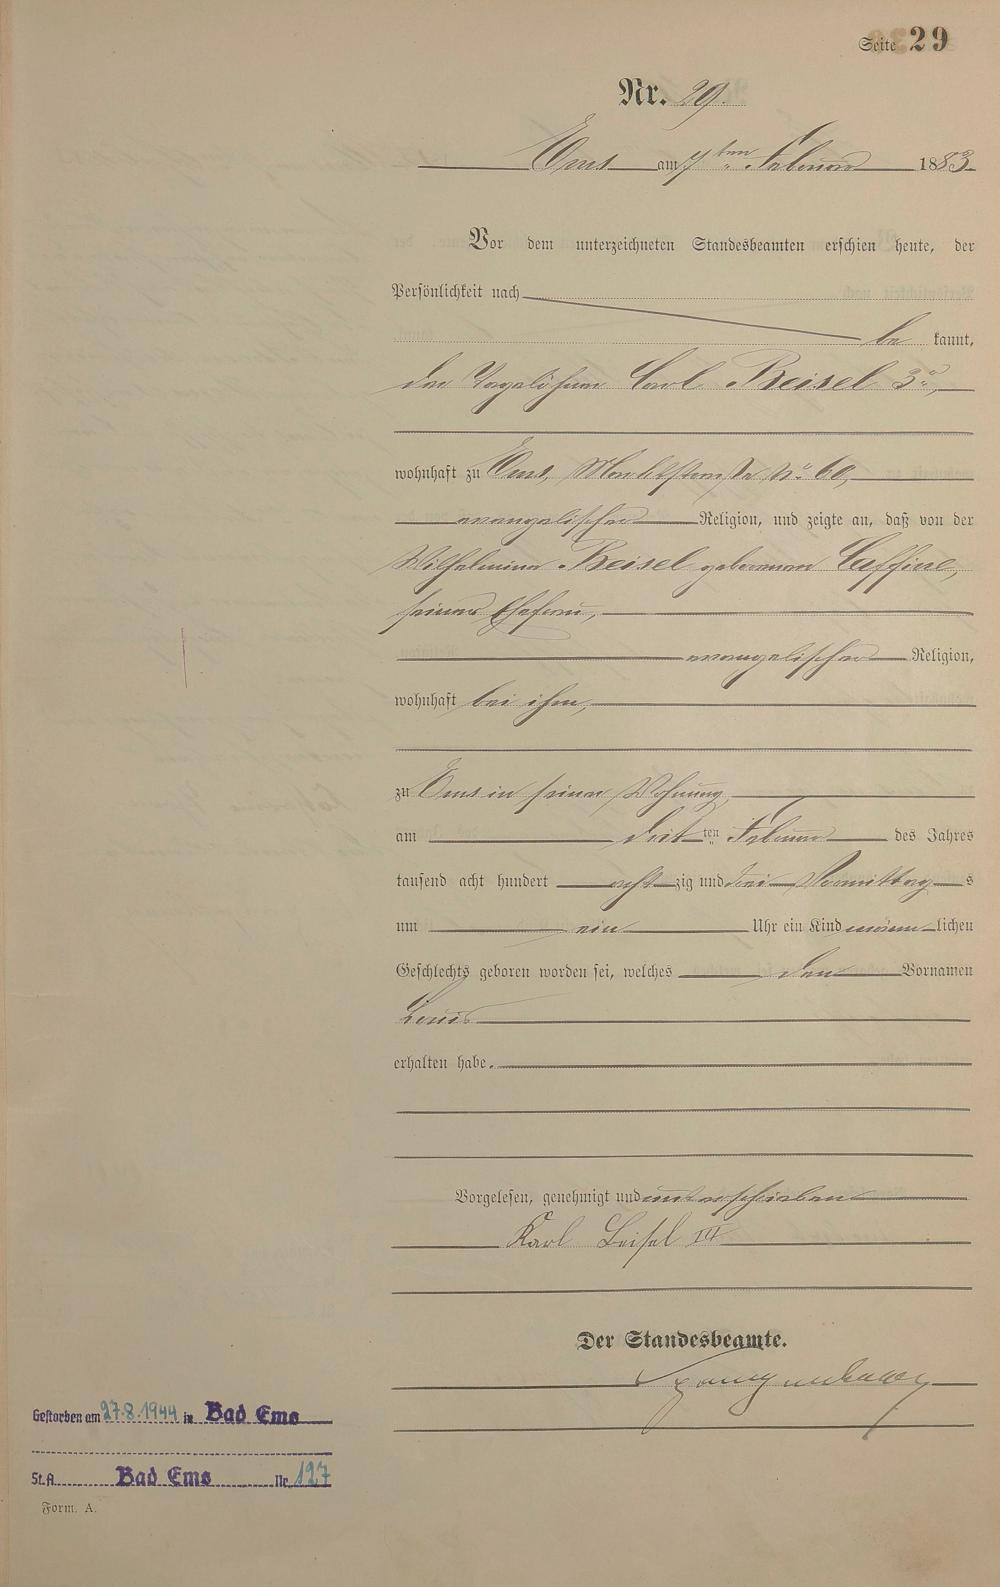 Seite 29
Nr. 29.
Ems am 7ten Februar 1883.
Vor dem unterzeichneten Standesbeamten erschien heute, der
Persönlichkeit nach
be kannt,
der Tagelöhner Carl Beisel 3r,
wohnhaft zu Ems, Marktstraße No. 60,
evangelischer Religion, und zeigte an, daß von der
Wilhelmine Beisel geborenen Caffine,
seiner Ehefrau,
evangelischer Religion,
wohnhaft bei ihm,
zu Ems in seiner Wohnung
am drit ten Februar des Jahres
tausend acht hundert acht zig und drei Vormittag s
um ein Uhr ein Kind männ lichen
Geschlechts geboren worden sei, welches den Vornamen
Louis
erhalten habe.
Vorgelesen, genehmigt und unterschrieben
Karl Beisel III
Der Standesbeamte.
Gestorben am 27.8.1944 in Bad Ems
St.A. Bad Ems Nr. 127
Form. A.